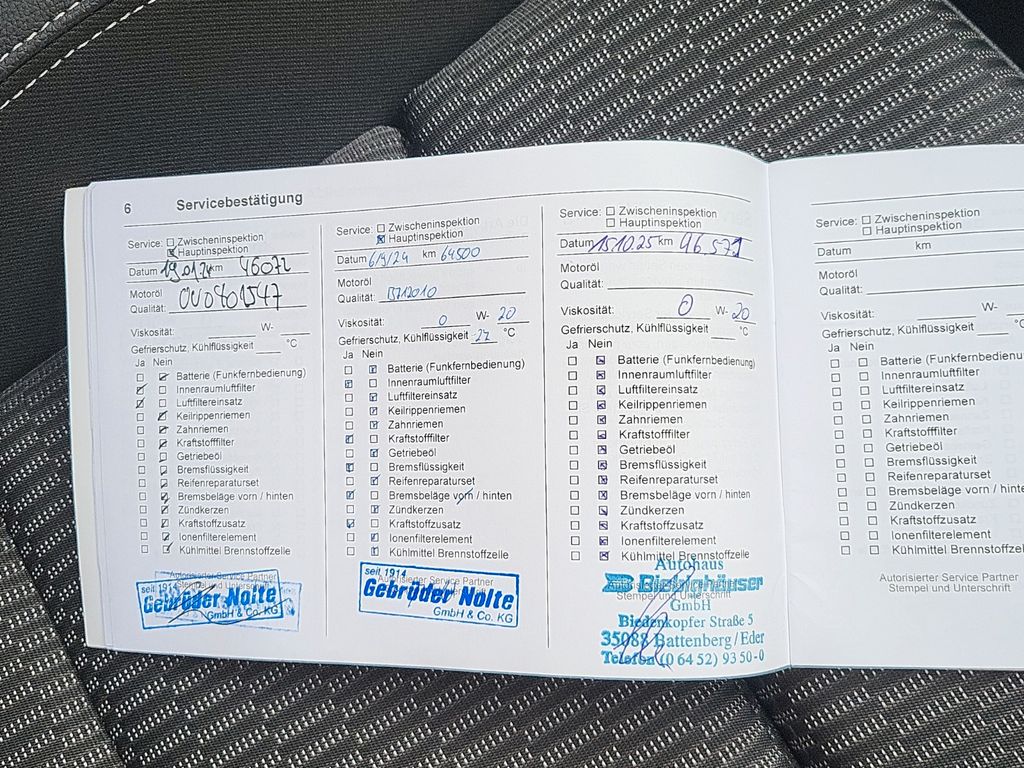 6 Servicebestätigung
Service: Zwischeninspektion
Hauptinspektion
Datum 19.01.24 km 46072
Motoröl
Qualität: 0V0801547
Viskosität: W-
Gefrierschutz, Kühlflüssigkeit °C
Ja Nein
Batterie (Funkfernbedienung)
Innenraumluftfilter
Luftfiltereinsatz
Keilrippenriemen
Zahnriemen
Kraftstofffilter
Getriebeöl
Bremsflüssigkeit
Reifenreparaturset
Bremsbeläge vorn / hinten
Zündkerzen
Kraftstoffzusatz
Ionenfilterelement
Kühlmittel Brennstoffzelle
Autorisierter Service Partner
Stempel und Unterschrift
seit 1914
Gebrüder Nolte
GmbH & Co. KG
Service: Zwischeninspektion
Hauptinspektion
Datum 6/9/24 km 64500
Motoröl
Qualität: B712010
Viskosität: 0 W- 20
Gefrierschutz, Kühlflüssigkeit °C
Ja Nein
Batterie (Funkfernbedienung)
Innenraumluftfilter
Luftfiltereinsatz
Keilrippenriemen
Zahnriemen
Kraftstofffilter
Getriebeöl
Bremsflüssigkeit
Reifenreparaturset
Bremsbeläge vorn / hinten
Zündkerzen
Kraftstoffzusatz
Ionenfilterelement
Kühlmittel Brennstoffzelle
Autorisierter Service Partner
seit 1914
Gebrüder Nolte
GmbH & Co. KG
Service: Zwischeninspektion
Hauptinspektion
Datum 15.10.25 km 96.571
Motoröl
Qualität:
Viskosität: 0 W- 20
Gefrierschutz, Kühlflüssigkeit °C
Ja Nein
Batterie (Funkfernbedienung)
Innenraumluftfilter
Luftfiltereinsatz
Keilrippenriemen
Zahnriemen
Kraftstofffilter
Getriebeöl
Bremsflüssigkeit
Reifenreparaturset
Bremsbeläge vorn / hinten
Zündkerzen
Kraftstoffzusatz
Ionenfilterelement
Kühlmittel Brennstoffzelle
Autohaus
Stempel und Unterschrift
GmbH
Biedenkopfer Straße 5
35088 Battenberg/Eder
Telefon (0 64 52) 93 50-0
Service: Zwischeninspektion
Hauptinspektion
Datum km
Motoröl
Qualität:
Viskosität: W-
Gefrierschutz, Kühlflüssigkeit
Ja Nein
Batterie (Funkfernbedienu
Innenraumluftfilter
Luftfiltereinsatz
Keilrippenriemen
Zahnriemen
Kraftstofffilter
Getriebeöl
Bremsflüssigkeit
Reifenreparaturset
Bremsbeläge vorn / hinte
Zündkerzen
Kraftstoffzusatz
Ionenfilterelement
Kühlmittel Brennstoffzel
Autorisierter Service Partner
Stempel und Unterschrift